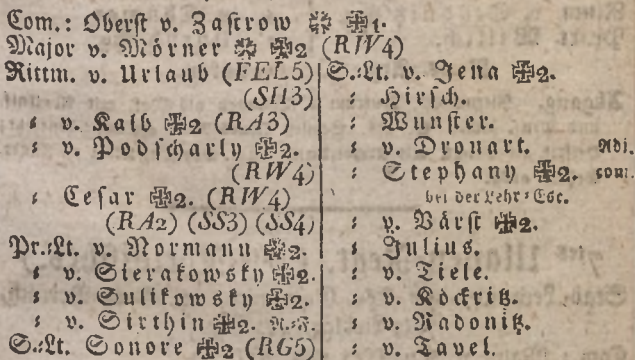 Com.: Oberst v. Zastrow ✠ ✠1.
Major v. Mörner ✠ ✠2 (RW4)
Rittm. v. Urlaub (FEL5)
(SH3)
: v. Kalb ✠2 (RA3)
: v. Podscharly ✠2.
(RW4)
: Cesar ✠2. (RW4)
(RA2) (SS3) (SS4)
Pr.:Lt. v. Normann ✠2.
: v. Sierakowsky ✠2.
: v. Sulikowsky ✠2.
: v. Sirthin ✠2.
S.:Lt. Sonore ✠2 (RG5)
S.:Lt. v. Jena ✠2.
: Hirsch.
: Wunster.
: v. Dronart. Adj.
: Stephany ✠2. com.
bei der Lehr:Esc.
: v. Värst ✠2.
: Julius.
: v. Tiele.
: v. Köckritz.
: v. Radonitz.
: v. Tavel.